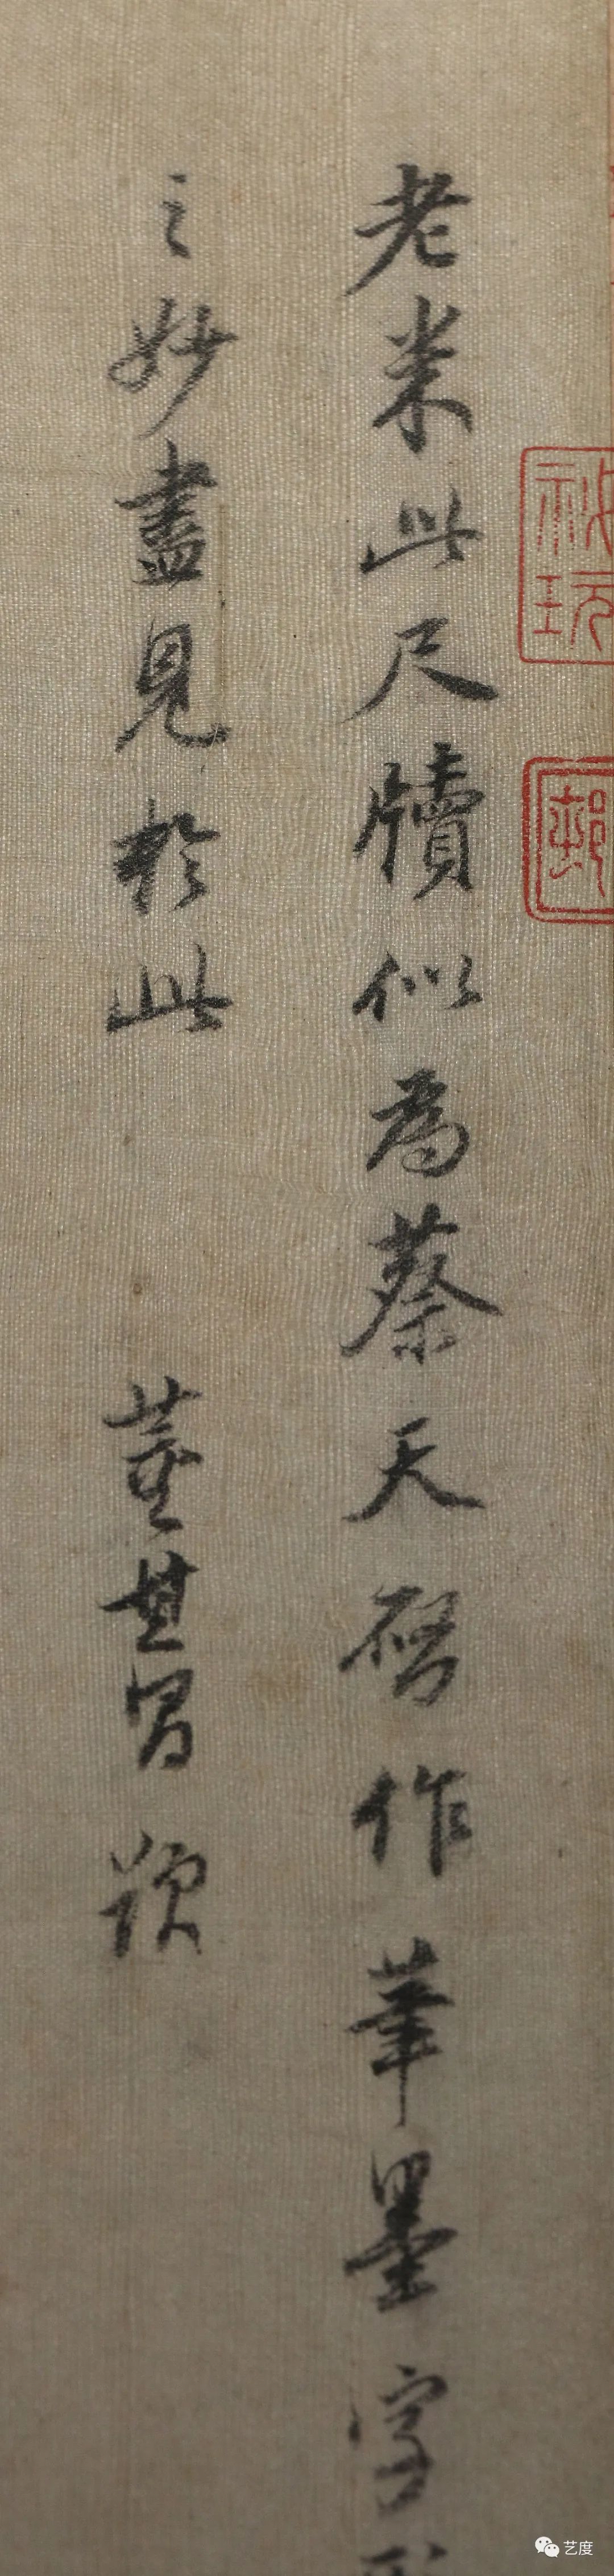 老米此尺牘似為蔡天啓作筆墨字
之妙盡見於此 董其昌題
秘玩
郵
艺度